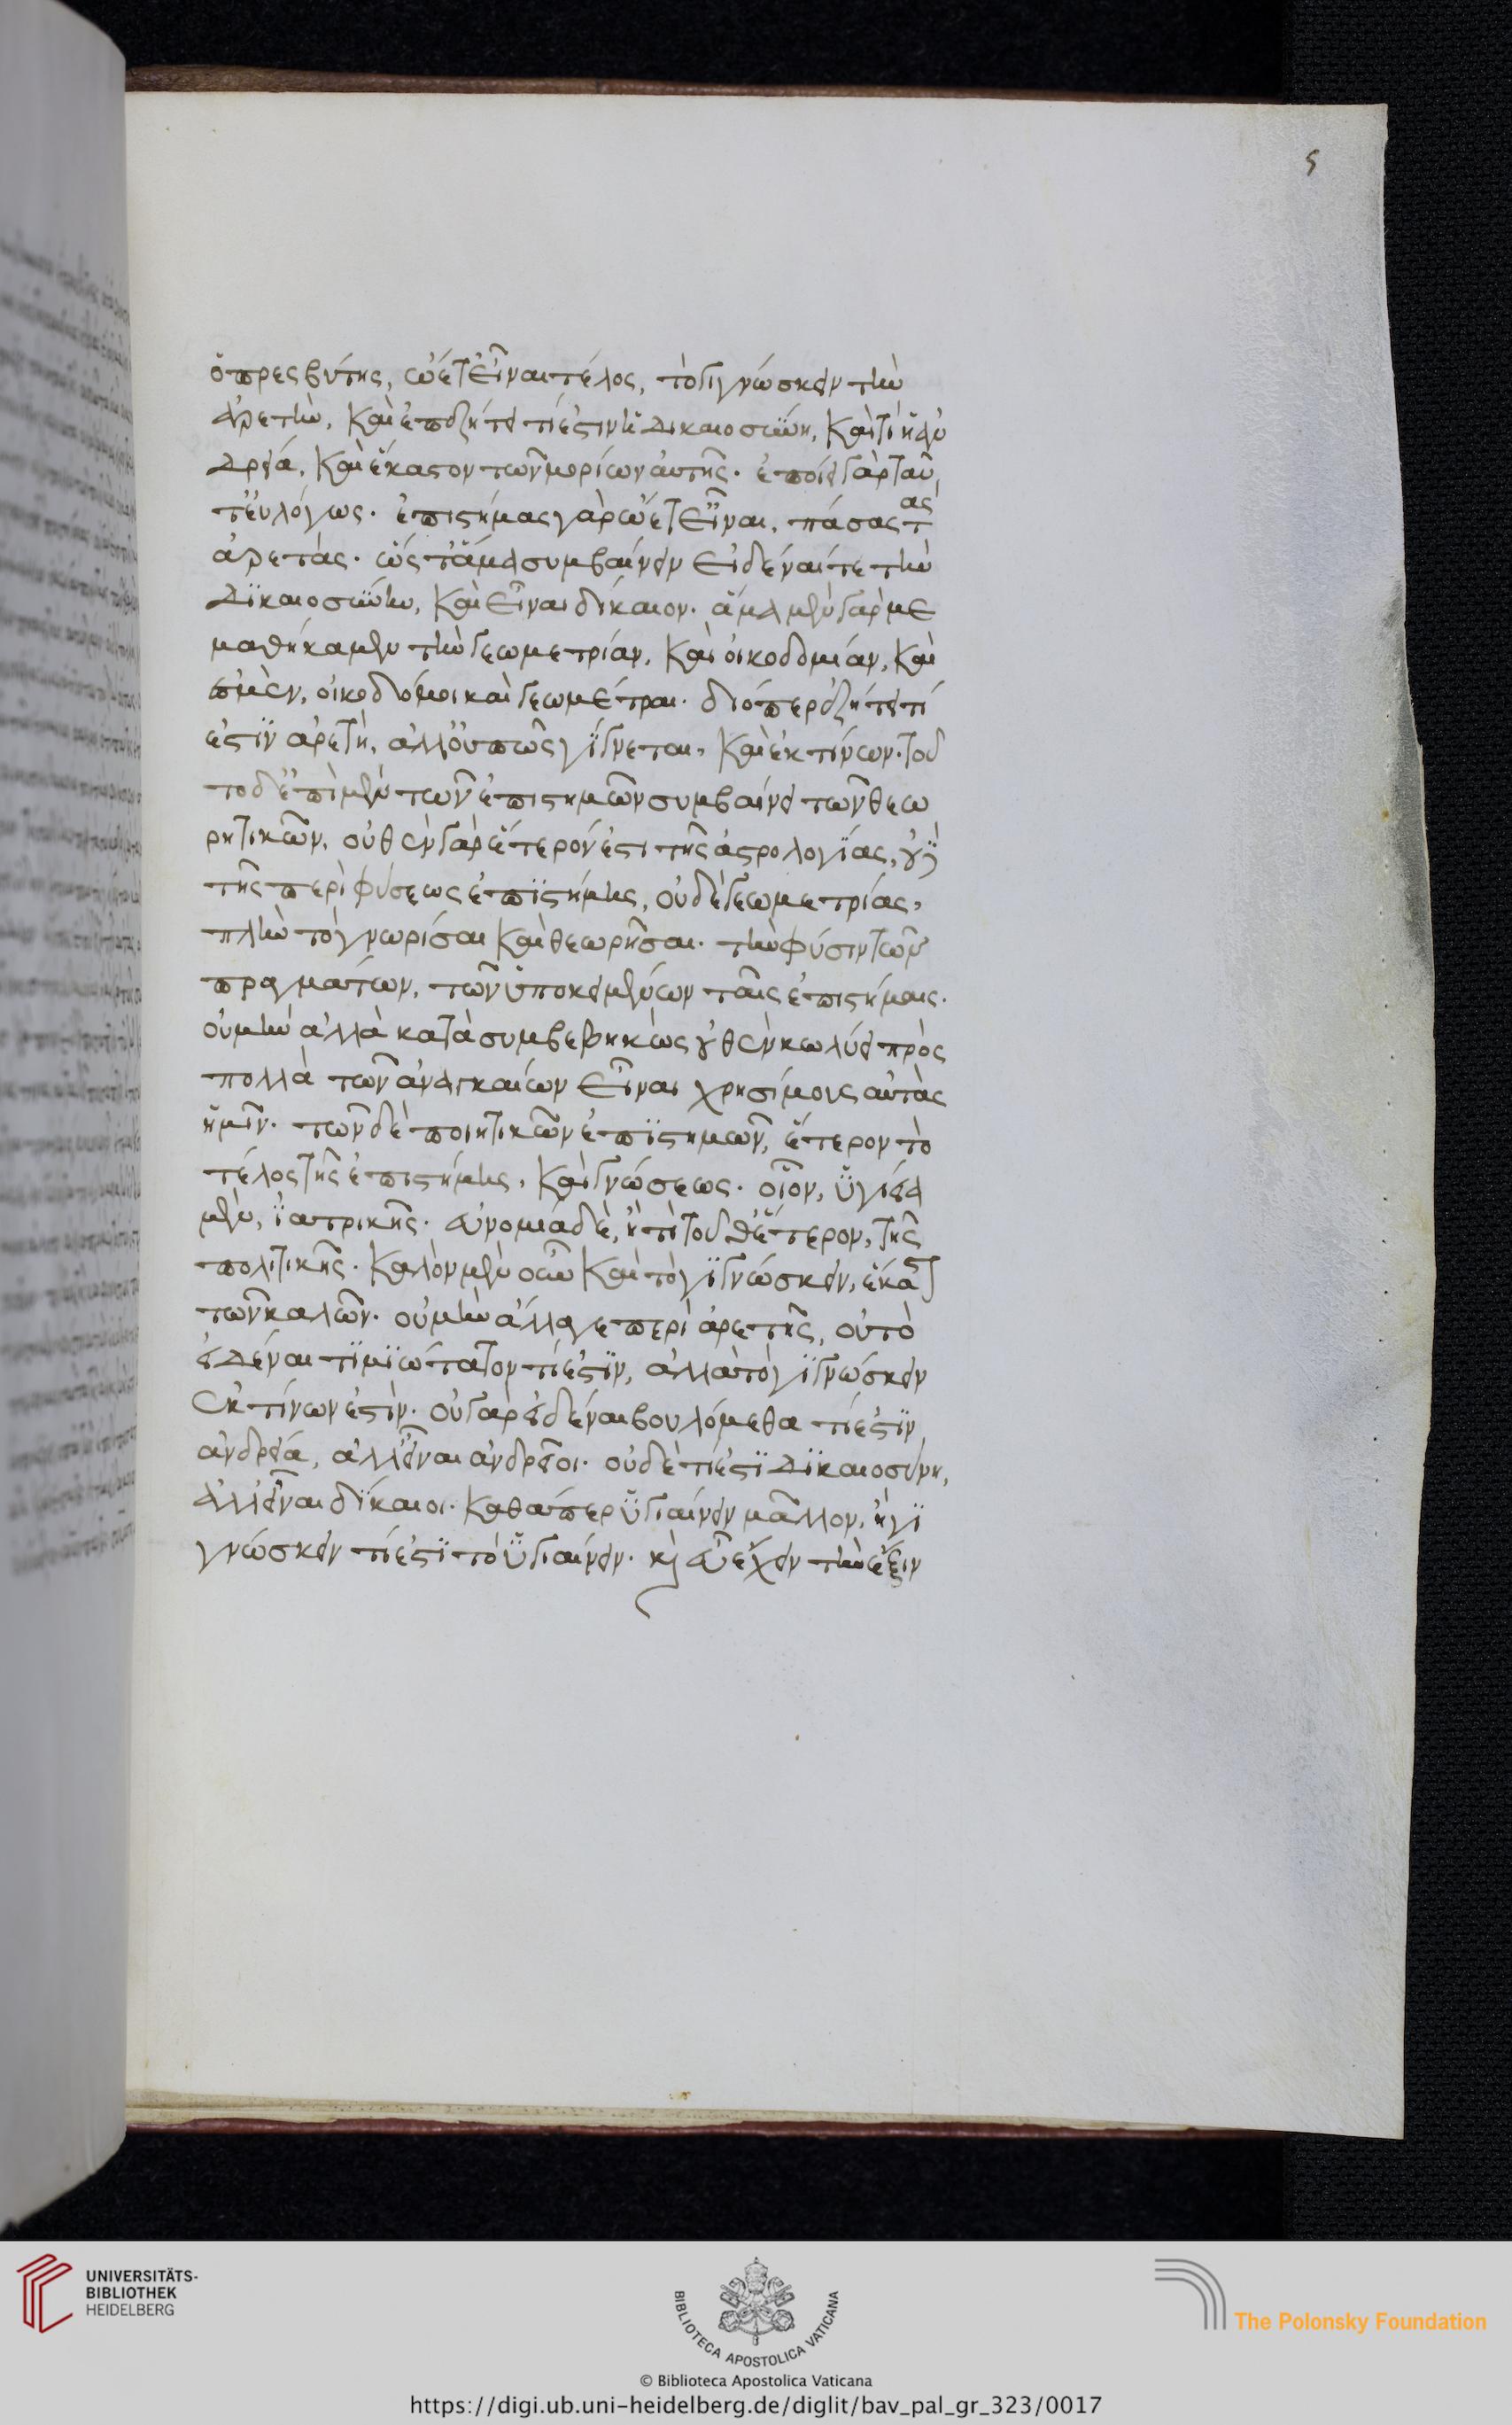 5
ὁ πρεσβύτης, ὤετ εἶναι τέλος, τὸ γιγνώσκειν τὴν
ἀρετὴν, καὶ ἐπεζήτει τί ἐστιν ἡ δικαιοσύνη, καὶ τί ἡ ἀν
δρεία, καὶ ἕκαστον τῶν μορίων αὐτῆς. ἐποίει γὰρ ταῦ
τ' εὐλόγως. ἐπιστήμας γὰρ ὤετ' εἶναι, πάσας τὰς
ἀρετάς. ὥστ' ἅμα συμβαίνειν εἰδέναι τε τὴν
δικαιοσύνην, καὶ εἶναι δίκαιον. ἅμα μὲν γὰρ με
μαθήκαμεν τὴν γεωμετρίαν, καὶ οἰκοδομίαν, καὶ
ἐσμὲν, οἰκοδόμοι καὶ γεωμέτραι. διόπερ ἐζήτει τί
ἐστιν ἀρετὴ, ἀλλ' οὐ πῶς γίγνεται, καὶ ἐκ τίνων. τοῦ
το δ' ἐπὶ μὲν τῶν ἐπιστημῶν συμβαίνει τῶν θεω
ρητικῶν, οὐθὲν γὰρ ἕτερόν ἐστι τῆς ἀστρολογίας, οὐδὲ
τῆς περὶ φύσεως ἐπιστήμης, οὐδὲ γεωμετρίας,
πλὴν τὸ γνωρίσαι καὶ θεωρῆσαι. τὴν φύσιν τῶν
πραγμάτων, τῶν ὑποκειμένων ταῖς ἐπιστήμαις.
οὐ μὴν ἀλλὰ κατὰ συμβεβηκὼς οὐθὲν κωλύει πρὸς
πολλὰ τῶν ἀναγκαίων εἶναι χρησίμους αὐτὰς
ἡμῖν. τῶν δὲ ποιητικῶν ἐπιστημῶν, ἕτερον τὸ
τέλος τῆς ἐπιστήμης, καὶ γνώσεως. οἷον, ὑγίεια
μὲν, ἰατρικῆς. εὐνομία δὲ, ἤ τι τοῦθ' ἕτερον, τῆς
πολιτικῆς. καλὸν μὲν οὖν καὶ τὸ γιγνώσκειν, ἕκαστ
τῶν καλῶν. οὐ μὴν ἀλλά γε περὶ ἀρετῆς, οὐ τὸ
εἰδέναι τιμιώτατον τί ἐστιν, ἀλλὰ τὸ γιγνώσκειν
ἐκ τίνων ἐστίν. οὐ γὰρ εἰδέναι βουλόμεθα τί ἐστιν
ἀνδρεία, ἀλλ' εἶναι ἀνδρεῖοι. οὐδὲ τί ἐστι δικαιοσύνη,
ἀλλ' εἶναι δίκαιοι. καθάπερ ὑγιαίνειν μᾶλλον, ἢ γι
γνώσκειν τί ἐστι τὸ ὑγιαίνειν. καὶ εὖ ἔχειν τὴν ἕξιν
UNIVERSITÄTS-
BIBLIOTHEK
HEIDELBERG
BIBLIOTECA APOSTOLICA VATICANA
The Polonsky Foundation
© Biblioteca Apostolica Vaticana
https://digi.ub.uni-heidelberg.de/diglit/bav_pal_gr_323/0017